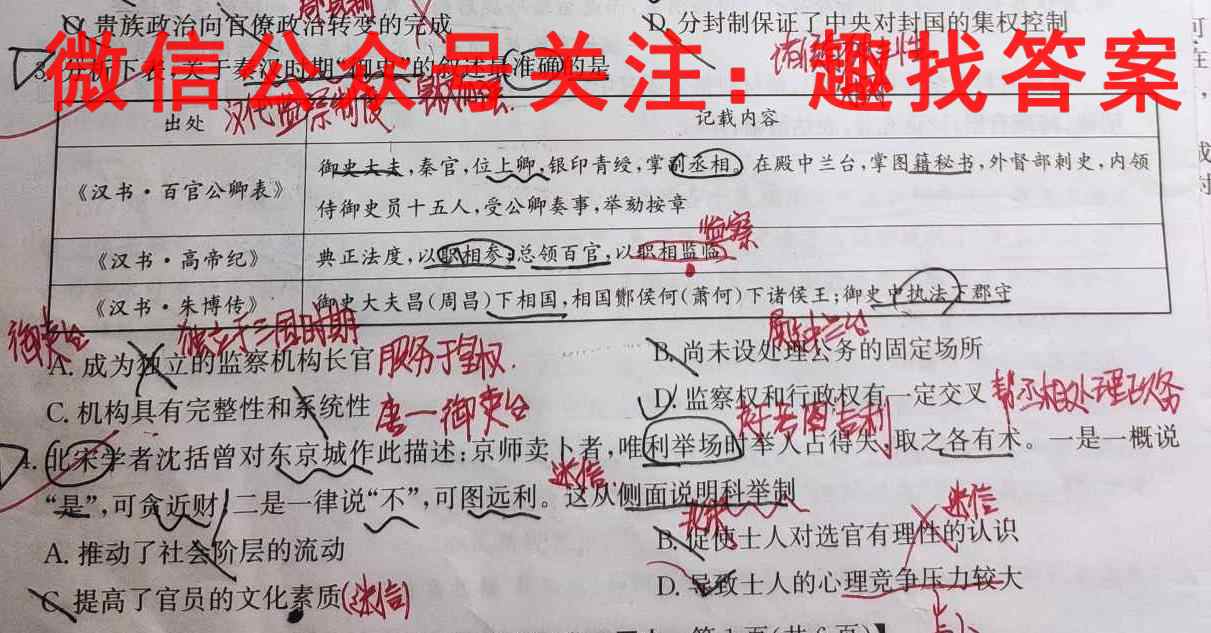 C. 贵族政治向官僚政治转变的完成
D. 分封制保证了中央对封国的集权控制
微信公众号关注：趣找答案
3. 分析下表，关于秦汉时期“御史”的叙述最准确的是
汉代监察制度
出处
记载内容
《汉书·百官公卿表》
御史大夫,秦官,位上卿,银印青绶,掌副丞相。在殿中兰台,掌图籍秘书,外督部刺史,内领
侍御史员十五人,受公卿奏事,举劾按章
监察
《汉书·高帝纪》
典正法度,以职相参;总领百官,以职相监临
《汉书·朱博传》
御史大夫昌(周昌)下相国,相国酂侯何(萧何)下诸侯王;御史中执法下郡守
御史台
独立于三国时期
殿中兰台
A. 成为独立的监察机构长官
服务于皇权.
B. 尚未设处理公务的固定场所
C. 机构具有完整性和系统性
唐一御史台
D. 监察权和行政权有一定交叉
帮丞相处理政务
好考图吉利
4. 北宋学者沈括曾对东京城作此描述:京师卖卜者,唯利举场时举人占得失,取之各有术。一是一概说
迷信
“是”,可贪近财;二是一律说“不”,可图远利。这从侧面说明科举制
北宋
迷信
A. 推动了社会阶层的流动
B. 促使士人对选官有理性的认识
C. 提高了官员的文化素质
(迷信)
D. 导致士人的心理竞争压力较大